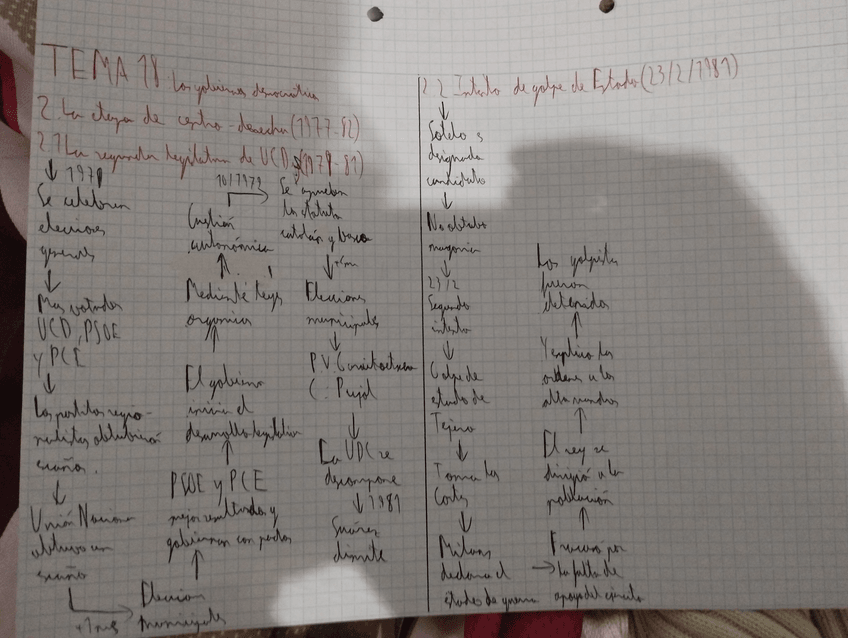 TEMA 18 Los gobiernos democráticos
2. La etapa de centro-derecha (1977-82)
2.1 La segunda legislatura de UCD (1979-81)
↓ 1979
Se celebran
elecciones
generales
↓
Mas votados
UCD, PSOE
y PCE
↓
Los partidos regio-
nalistas obtubieron
escaños.
↓
Unión Nacional
obtuvo un
escaño
+1 mes →
Eleccion
municipales
↑
PSOE y PCE
mejor resultados y
gobiernan con pactos
↑
El gobierno
inicia el
desarrollo legislativo
↑
Mediante leyes
organicas
↑
Cuestión
autonómica
10/1979 →
Se aprueban
los estatutos
catalán y vasco
↓
Elecciones
municipales
↓
PV
C: Pujol
↓
La UDC se
descompone
↓ 1981
Suárez
dimite
2.2 Intento de golpe de Estado (23/2/1981)
↓
Sotelo es
designado
candidato
↓
No obtubo
mayoria
↓
23/2
Segundo
intento
↓
Golpe de
estado de
Tejero
↓
Toma las
Cortes
↓
Milans
declara el
estado de guerra
→
Fracaso por
la falta de
apoyo del ejercito
↑
El rey se
dirigió a la
población
↑
Y explico las
ordenes a los
altos mandos
↑
Los golpistas
fueron
detenidos